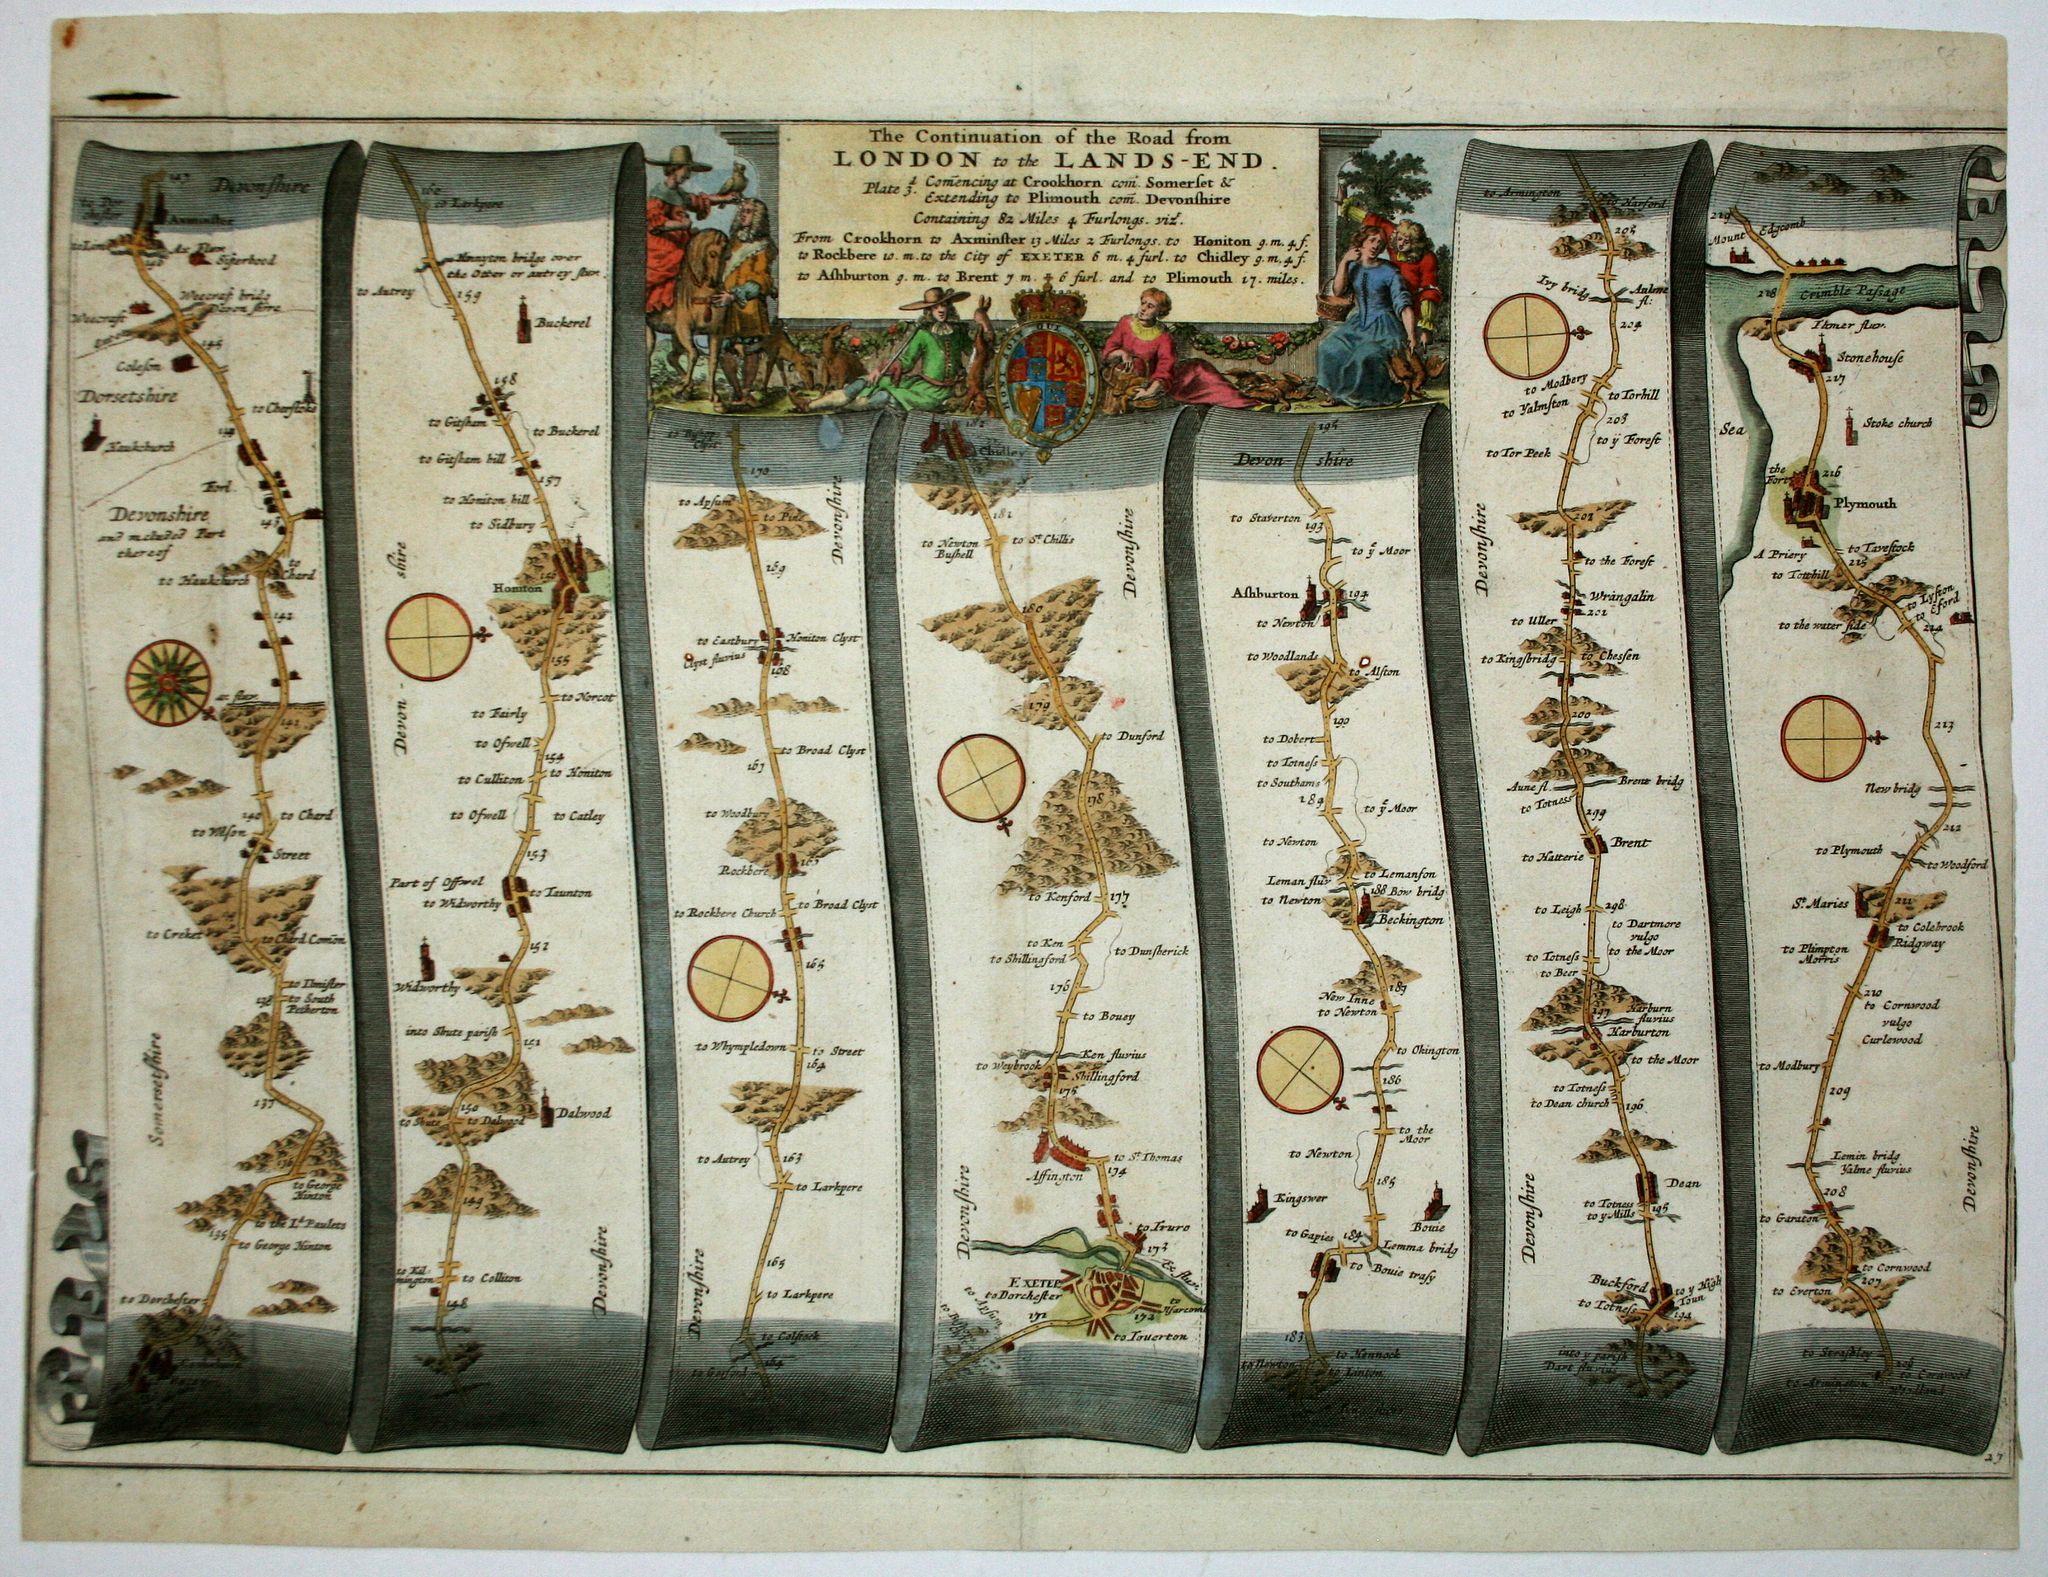 The Continuation of the Road from
LONDON to the LANDS-END.
Plate 3.d Com̄encing at Crookhorn com. Somerset &
Extending to Plimouth com. Devonshire
Containing 82 Miles 4 Furlongs. vizt.
From Crookhorn to Axminster 13 Miles 2 Furlongs. to Honiton 9. m. 4 f.
to Rockbere 10. m. to the City of EXETER 6 m. 4 furl. to Chidley 9. m. 4 f.
to Ashburton 9. m. to Brent 7 m. 6 furl. and to Plimouth 17. miles.
147
Devonshire
Axminster
Ax fluv.
146
Weecraft bridg
Weecraft
Devonshire
145
Coleson
Dorsetshire
to Charstoke
144
Haukchurch
Forl
Devonshire
and included Part
thereof
143
to Haukchurch
to Chard
142
ax fluv.
141
140
to Chard
to Wilson
Street
to Creket
to Chard Com̄on
to Ilmister
138
to South
Petherton
Somersetshire
137
136
to George
Hinton
to the Ld. Paulets
135
to George Hinton
to Dorchester
160
to Larkpere
Honnyton bridge over
the Otter or autrey fluv.
to Autrey
159
Buckerel
158
to Gitsham
to Buckerel
to Gitsham hill
157
to Honiton hill
to Sidbury
Devon-shire
156
Honiton
155
to Norcot
to Fairly
to Ofwell
154
to Culliton
to Honiton
to Ofwell
to Catley
153
Part of Offwel
to Widworthy
to Taunton
152
Widworthy
into Shute parish
151
150
Dalwood
to Shute
to Dalwood
149
Devonshire
to Kilmington
to Colliton
148
170
to Apsum
to Pin
Devonshire
169
to Eastbury
Honiton Clyst
Clyst fluvius
168
to Broad Clyst
167
to Woodbury
Rockbere
to Broad Clyst
to Rockbere Church
165
to Whympledown
to Street
164
163
to Autrey
to Larkpere
Devonshire
165
to Larkpere
to Colstock
to Gosford
182
Chidley
181
to Newton
Bushell
to St. Chillis
Devonshire
180
179
to Dunford
178
to Kenford
177
to Ken
to Dunsherick
to Shillingford
176
to Bouey
Ken fluvius
to Weybrook
Shillingford
175
to St. Thomas
174
Affington
Devonshire
to Truro
173
Ex fluv.
EXETER
to Dorchester
to Apsum
171
172
to Touerton
195
Devonshire
to Staverton
193
to ye Moor
Ashburton
194
to Newton
to Woodlands
to Alston
190
to Dobert
to Totness
to Southams
189
to ye Moor
to Newton
Leman fluv
to Lemanson
188
Bow bridg
to Newton
Beckington
187
New Inne
to Newton
to Okington
186
to the
Moor
to Newton
185
Kingswer
Bouie
to Gapies
184
Lemma bridg
to Bouie trasy
183
to Newton
to Hennock
to Linton
to Armington
to Harford
205
Ivy bridg
Aulme
fl:
204
to Modbery
to Yalmston
to Torhill
203
to ye Forest
to Tor Peek
Devonshire
202
to the Forest
Wrangalin
201
to Uller
to Kingsbridg
to Chessen
200
Brent bridg
Aune fl.
to Totness
199
Brent
to Hatterie
to Leigh
298
to Dartmore
vulgo
to the Moor
to Totness
to Beer
197
Harburn
fluvius
Harburton
to the Moor
to Totness
to Dean church
196
Dean
to Totness
to ye Mills
195
Devonshire
Buckford
to ye High
Toun
to Totness
194
into ye parish
Dart fluvius
219
Mount Edgcomb
218
Crimble Passage
Stonehouse
217
Sea
Stoke church
the
Fort
216
Plymouth
A Priery
to Tavestock
215
to Totthill
to Lyston
to Eford
to the water side
214
213
New bridg
212
to Plymouth
to Woodford
St. Maries
211
to Colebrook
Ridgway
to Plimpton
Morris
210
to Cornwood
vulgo
Curlewood
to Modbury
209
Lemin bridg
Yalme fluvius
208
to Garaton
Devonshire
to Cornwood
207
to Everton
to Strashley
206
to Armington
to Cornwood
27